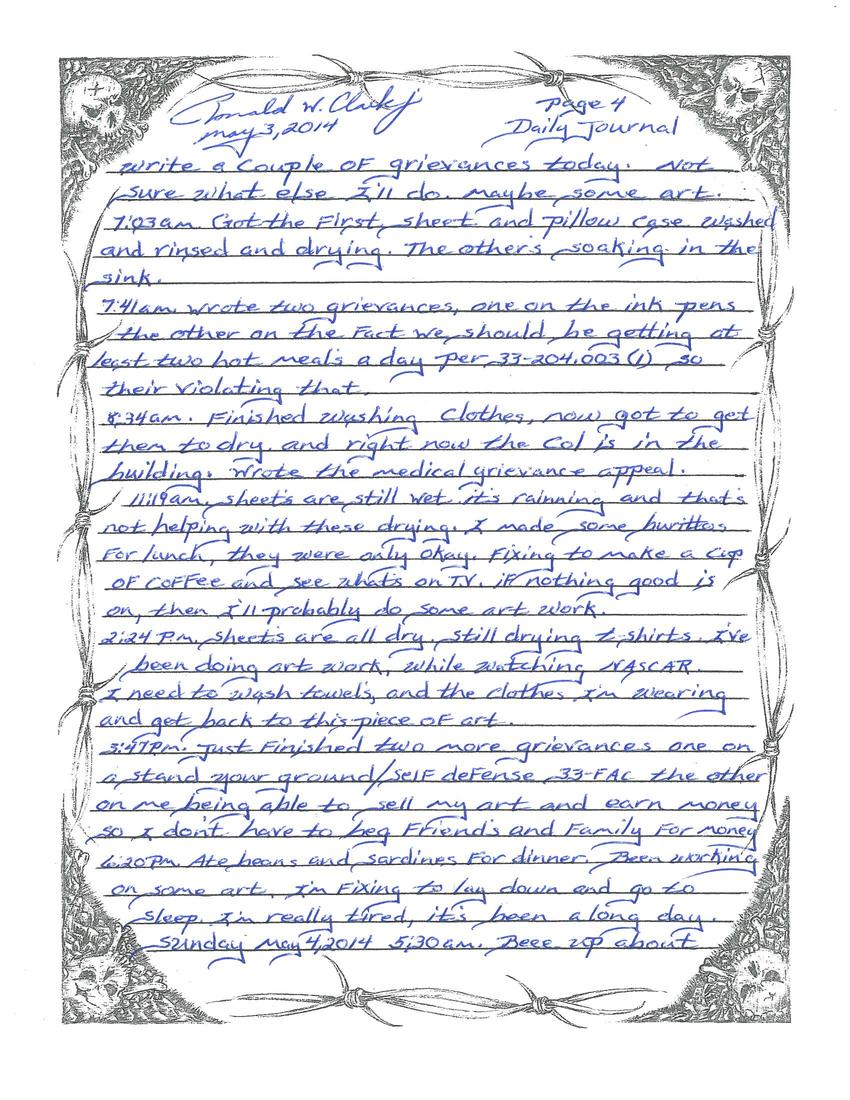 Ronald W. Clark Jr
Page 4
May 3, 2014
Daily Journal
write a couple of grievances today. Not
sure what else I'll do. Maybe some art.
7:03am. Got the First, sheet and pillow case washed
and rinsed and drying. The other's soaking in the
sink.
7:41am. Wrote two grievances, one on the ink pens
the other on the Fact we should be getting at
least two hot meal's a day per 33-204.003(1) so
their violating that.
8:34am. Finished washing clothes, now got to get
them to dry. and right now the Col is in the
building. Wrote the medical grievance appeal.
11:19am. sheet's are still wet it's rainning and that's
not helping with these drying. I made some burittos
For lunch, they were only okay. Fixing to make a cup
OF COFFee and see what's on TV. if nothing good is
on, then I'll probably do some art work.
2:24 P.m. sheet's are all dry. still drying t-shirts. I've
been doing art work, while watching NASCAR.
I need to wash towel's, and the clothes I'm wearing
and get back to this piece of art.
3:47P.m. Just Finished two more grievances one on
a stand your ground/self defense 33-FAC the other
on me being able to sell my art and earn money
so I don't have to beg Friend's and Family For money
6:20Pm. Ate beans and sardines For dinner. Been working
on some art. I'm Fixing to lay down and go to
sleep. I'm really tired, it's been a long day.
Sunday May 4, 2014 5:30am. Beee up about